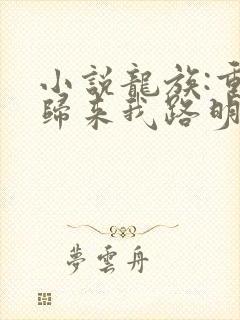 小說龍族:重
歸来我路明
夢雲舟